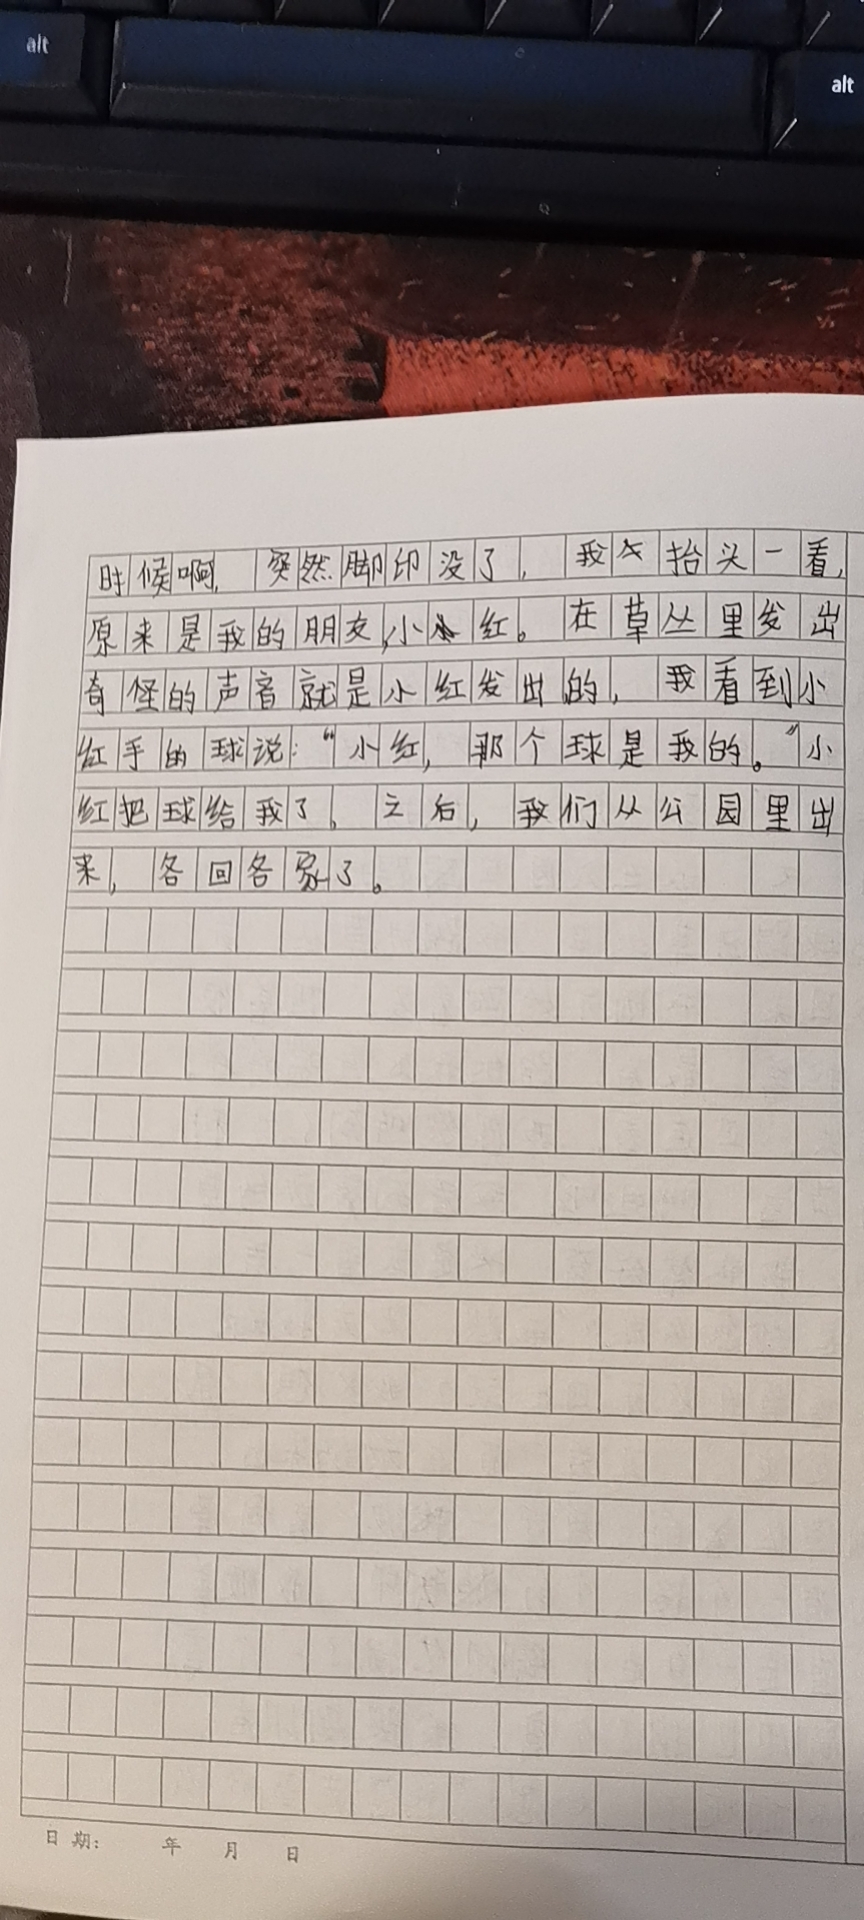 alt
alt
时候啊,突然脚印没了,我抬头一看,
原来是我的朋友,小红。在草丛里发出
奇怪的声音就是小红发出的,我看到小
红手的球说:“小红,那个球是我的。”小
红把球给我了。之后,我们从公园里出
来,各回各家了。
日期: 年 月 日